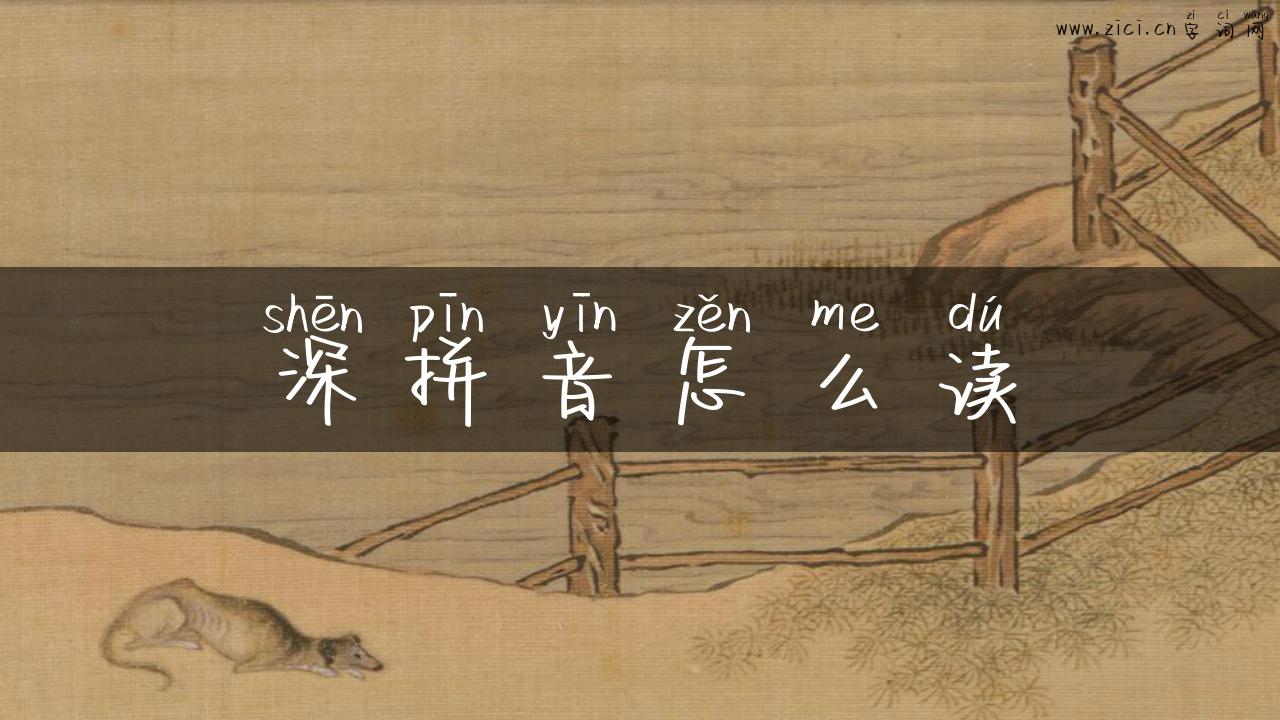 zi ci wang
www.zici.cn 字词网
shēn pīn yīn zěn me dú
深拼音怎么读